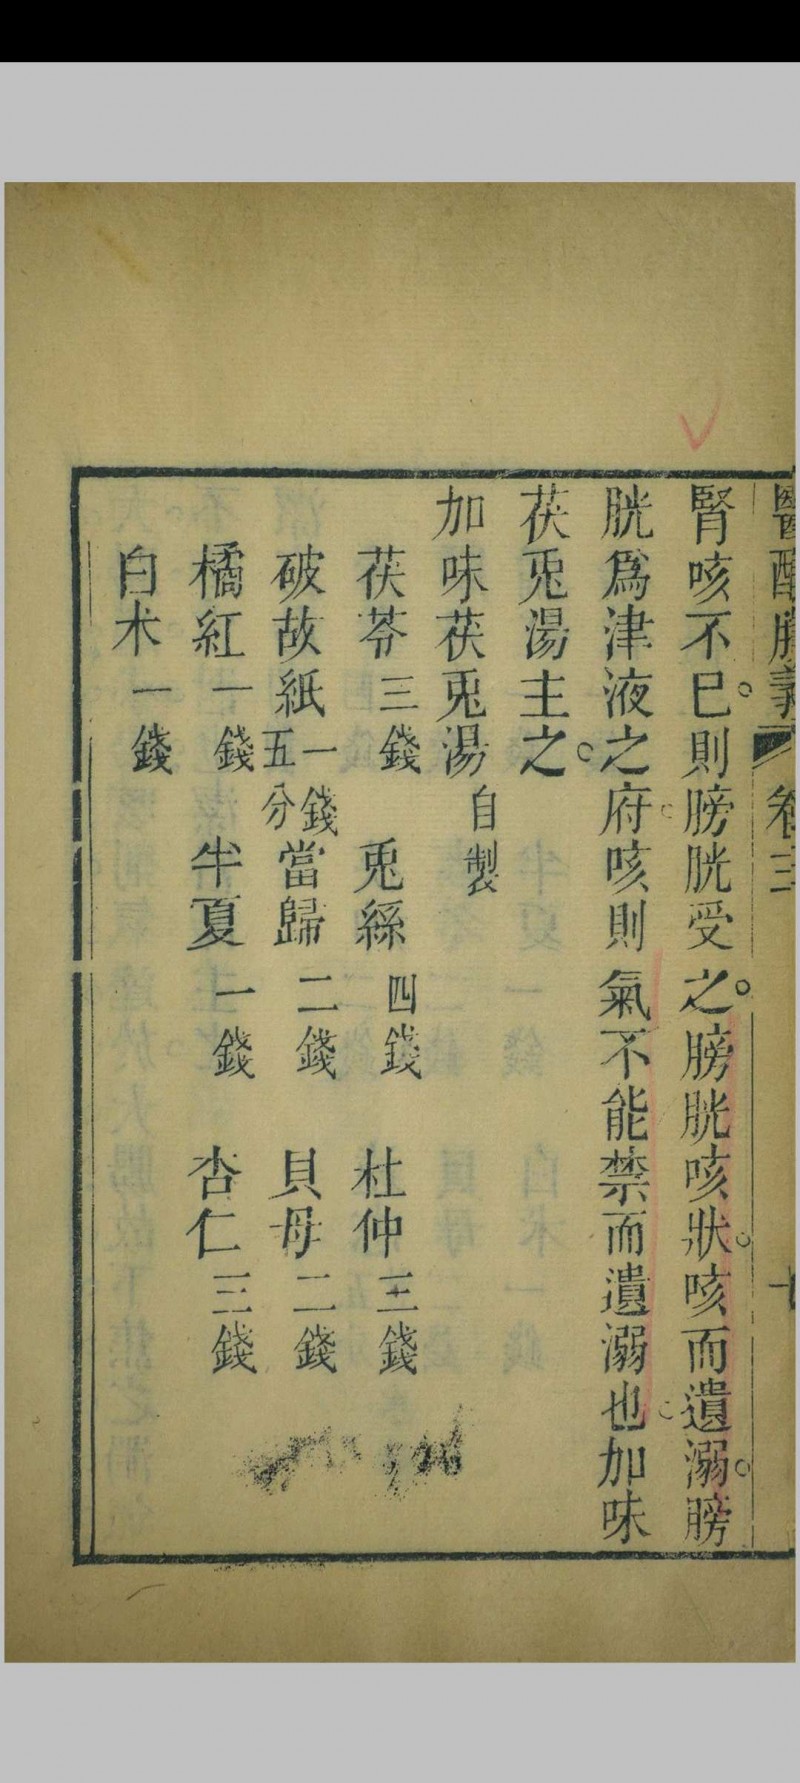 醫醇賸義 卷三
腎咳不已則膀胱受之。膀胱咳狀。咳而遺溺。膀
胱爲津液之府咳則氣不能禁而遺溺也加味
茯兎湯主之。
加味茯兎湯 自製
茯苓三錢 兎絲四錢 杜仲三錢
破故紙一錢五分 當歸二錢 貝母二錢
橘紅一錢 半夏一錢 杏仁三錢
白术一錢